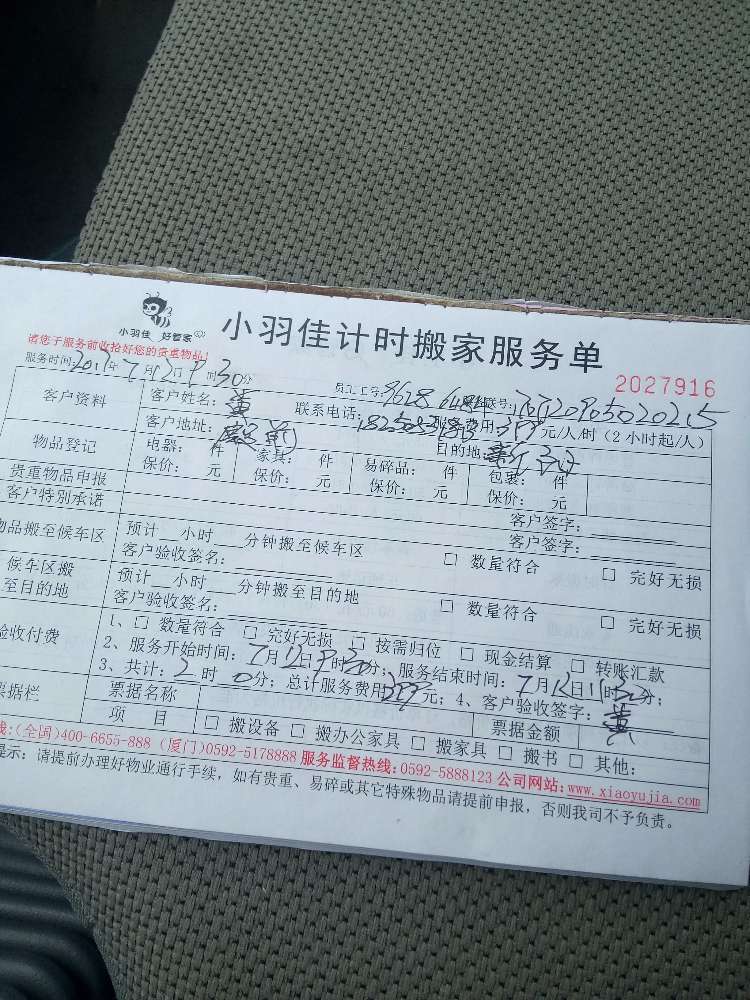 小羽佳 好管家
小羽佳计时搬家服务单
请您于服务前收拾好您的贵重物品!
2027916
服务时间: 年7月12日9时30分 员工工号:9618 6484 联号:
客户资料 客户姓名:黄 联系电话: 服务费用:399元/人/时(2小时起/人)
客户地址: 目的地:
物品登记 电器: 件 家具: 件 易碎品: 件 包裹: 件
保价: 元 保价: 元 保价: 元 保价: 元
贵重物品申报 客户签字:
客户特别承诺 客户签字:
物品搬至候车区 预计 小时 分钟搬至候车区 □ 数量符合 □ 完好无损
客户验收签名:
候车区搬至目的地 预计 小时 分钟搬至目的地 □ 数量符合 □ 完好无损
客户验收签名:
验收付费 1、□ 数量符合 □ 完好无损 □ 按需归位 □ 现金结算 □ 转账汇款
2、服务开始时间:7月12日9时30分;服务结束时间:7月12日11时30分;
3、共计:2时0分;总计服务费用399元;4、客户验收签字:黄
票据栏 票据名称 票据金额
项 目 □ 搬设备 □ 搬办公家具 □ 搬家具 □ 搬书 □ 其他:
线:(全国)400-6655-888 (厦门)0592-5178888 服务监督热线:0592-5888123 公司网站:www.xiaoyujia.com
提示:请提前办理好物业通行手续,如有贵重、易碎或其它特殊物品请提前申报,否则我司不予负责。